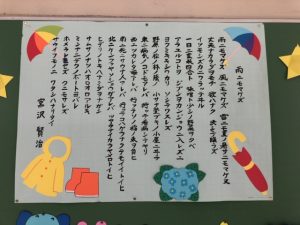 雨ニモマケズ
雨ニモマケズ 風ニモマケズ 雪ニモ夏ノ暑サニモマケヌ
丈夫ナカラダヲモチ 欲ハナク 決シテ瞋ラズ
イツモシズカニワラッテヰル
一日ニ玄米四合ト 味噌ト少シノ野菜ヲタベ
アラユルコトヲ ジブンヲカンジョウニ入レズニ
ヨクミキキシワカリ ソシテワスレズ
野原ノ松ノ林ノ蔭ノ 小サナ萱ブキノ小屋ニヰテ
東ニ病気ノコドモアレバ 行ッテ看病シテヤリ
西ニツカレタ母アレバ 行ッテソノ稲ノ束ヲ負ヒ
南ニ死ニサウナ人アレバ 行ッテコハガラナクテモイイトイヒ
北ニケンクヮヤソショウガアレバ ツマラナイカラヤメロトイヒ
ヒデリノトキハナミダヲナガシ
サムサノナツハオロオロアルキ
ミンナニデクノボートヨバレ
ホメラレモセズ クニモサレズ
サウイフモノニ ワタシハナリタイ
宮沢 賢治